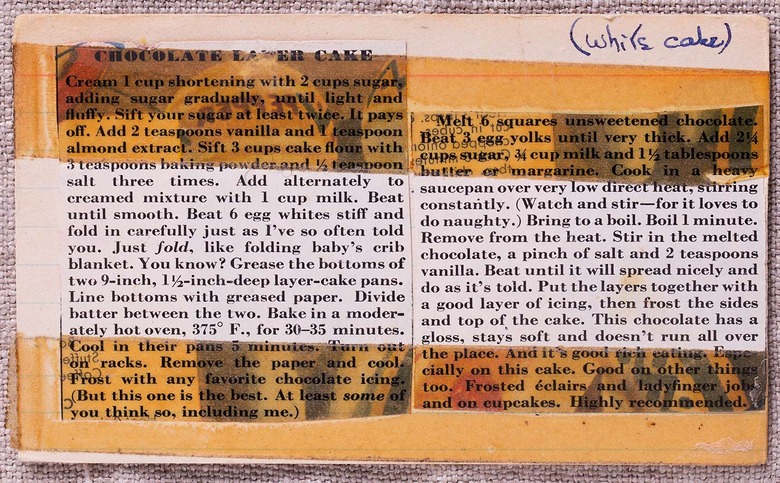 (white cake)
CHOCOLATE LAYER CAKE
Cream 1 cup shortening with 2 cups sugar,
adding sugar gradually, until light and
fluffy. Sift your sugar at least twice. It pays
off. Add 2 teaspoons vanilla and 1 teaspoon
almond extract. Sift 3 cups cake flour with
3 teaspoons baking powder and ½ teaspoon
salt three times. Add alternately to
creamed mixture with 1 cup milk. Beat
until smooth. Beat 6 egg whites stiff and
fold in carefully just as I've so often told
you. Just fold, like folding baby's crib
blanket. You know? Grease the bottoms of
two 9-inch, 1½-inch-deep layer-cake pans.
Line bottoms with greased paper. Divide
batter between the two. Bake in a moder-
ately hot oven, 375° F., for 30–35 minutes.
Cool in their pans 5 minutes. Turn out
on racks. Remove the paper and cool.
Frost with any favorite chocolate icing.
(But this one is the best. At least some of
you think so, including me.)
Melt 6 squares unsweetened chocolate.
Beat 3 egg yolks until very thick. Add 2¼
cups sugar, ¾ cup milk and 1½ tablespoons
butter or margarine. Cook in a heavy
saucepan over very low direct heat, stirring
constantly. (Watch and stir—for it loves to
do naughty.) Bring to a boil. Boil 1 minute.
Remove from the heat. Stir in the melted
chocolate, a pinch of salt and 2 teaspoons
vanilla. Beat until it will spread nicely and
do as it's told. Put the layers together with
a good layer of icing, then frost the sides
and top of the cake. This chocolate has a
gloss, stays soft and doesn't run all over
the place. And it's good rich eating. Espe-
cially on this cake. Good on other things
too. Frosted éclairs and ladyfinger jobs
and on cupcakes. Highly recommended.